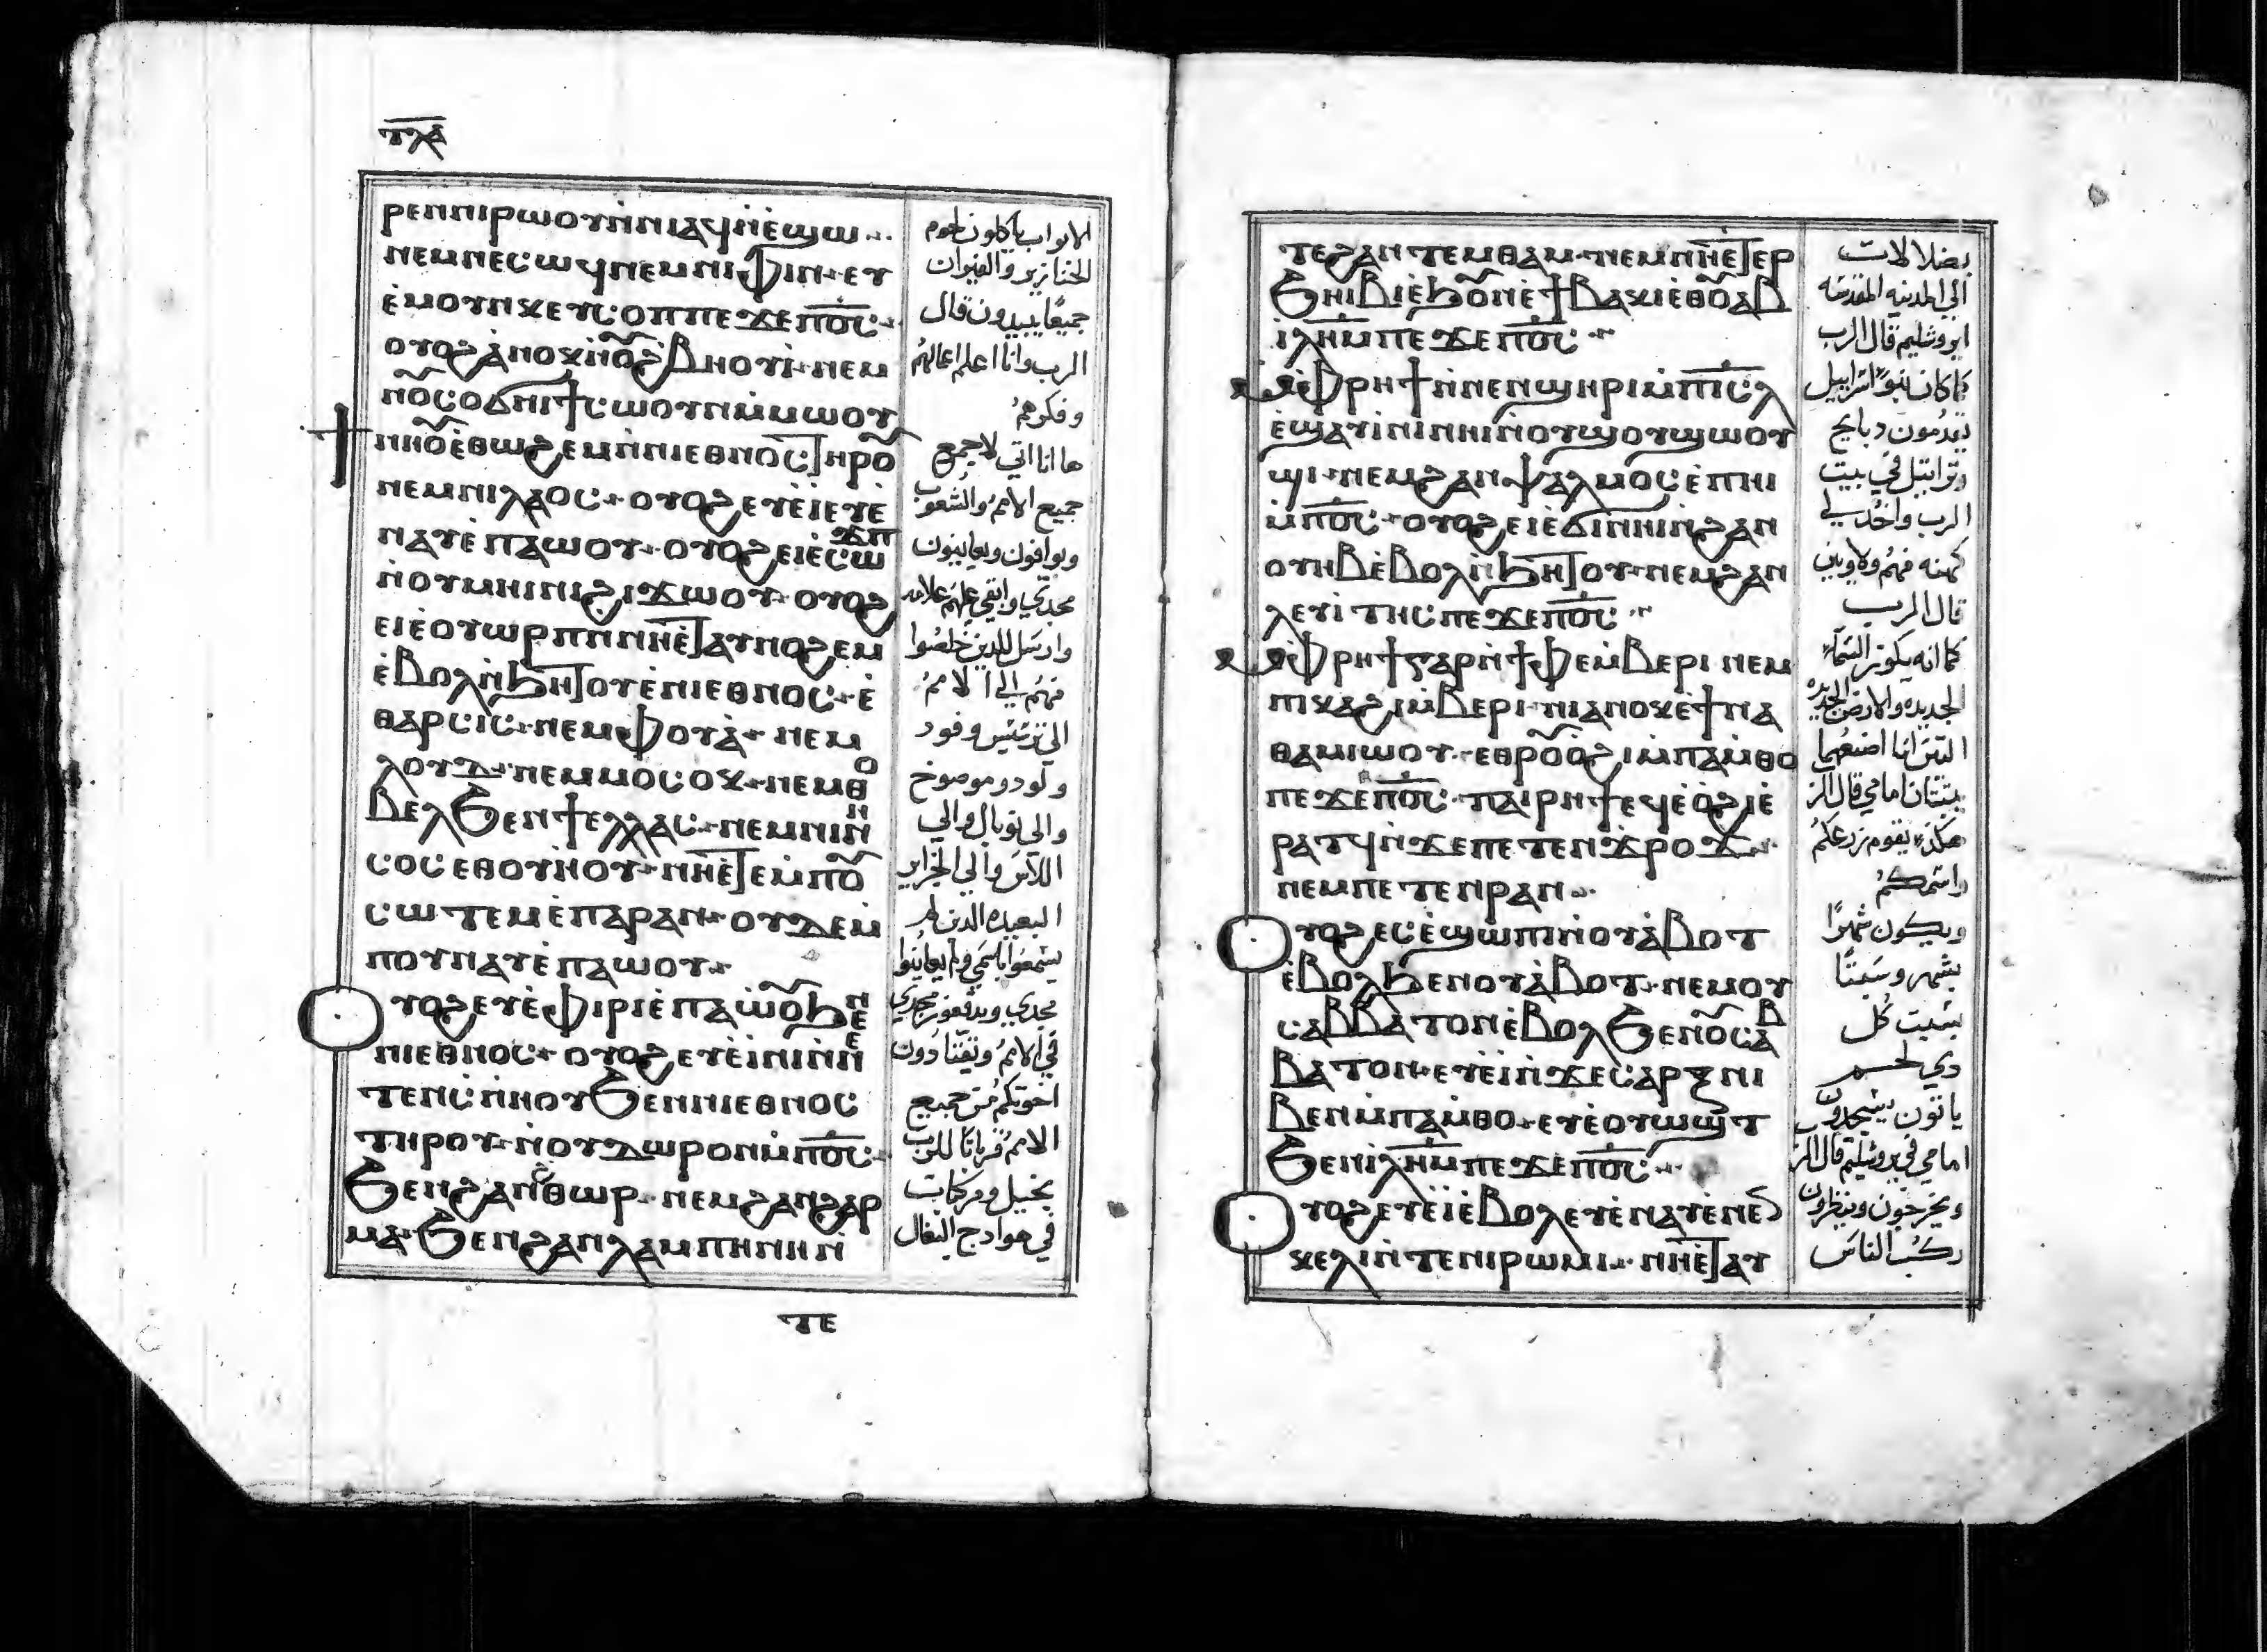 ⲧⲗⲇ
ⲣⲉⲛⲛⲓⲣⲱⲟⲩⲛ̀ⲛⲓⲁϥⲛ̀ⲉ̀ϣϣ
ⲛⲉⲙⲛⲉⲥⲱϥⲛⲉⲙⲛⲓⲫⲓⲛ· ⲉⲩ
ⲉ̀ⲙⲟⲩⲛⲕⲉⲩⲥⲟⲡⲡⲉϫⲉⲡ︦ⲟ︦ⲥ︦
ⲟⲩⲟϩⲁ̀ⲛⲟⲕⲛ̀ⲟ̃ϩⲃⲏⲟⲩⲓ̀· ⲛⲉⲙ
ⲛⲟ̃ⲥⲟϭⲛⲓϯⲥⲱⲟⲩⲛⲙ̀ⲙⲱⲟⲩ
ϯⲛⲏⲟ̃ⲉ̀ⲑⲱϩⲉⲙⲛ̀ⲛⲓⲉⲑⲛⲟⲥⲧⲏⲣⲟ̃
ⲛⲉⲙⲛⲓⲗⲁⲟⲥ· ⲟⲩⲟϩⲉⲩⲉ̀ⲓ̀ⲉⲩⲉ̀
ⲛⲁⲩⲉ̀ⲡⲁⲱⲟⲩ· ⲟⲩⲟϩⲉⲓⲉ̀ⲥⲱϫⲡ
ⲛ̀ⲟⲩⲙⲏⲓⲛⲓϩⲓϫⲱⲟⲩ· ⲟⲩⲟϩ
ⲉⲓⲉ̀ⲟⲩⲱⲣⲡⲛⲛⲏⲉ̀ⲧⲁⲩⲛⲟϩⲉⲙ
ⲉ̀ⲃⲟⲗⲛ̀ϧⲏⲧⲟⲩⲉ̀ⲛⲓⲉⲑⲛⲟⲥ· ⲉ̀
ⲑⲁⲣⲥⲓⲥ· ⲛⲉⲙⲫⲟⲩⲁ̀· ⲛⲉⲙ
ⲗⲟⲩⲇ· ⲛⲉⲙⲙⲟⲥⲟⲭ· ⲛⲉⲙⲑⲟ
ⲃⲉⲗϧⲉⲛϯⲉⲗⲗⲁⲥ· ⲛⲉⲙⲛⲓⲛ̀ⲏ
ⲥⲟⲥⲉⲑⲟⲩⲏ̀ⲟⲩ· ⲛⲏⲉ̀ⲧⲉⲙ̀ⲡⲟ̃
ⲥⲱⲧⲉⲙⲉ̀ⲡⲁⲣⲁⲛ· ⲟⲩⲇⲉⲙ̀
ⲡⲟⲩⲛⲁⲩⲉ̀ⲡⲁⲱⲟⲩ·
ⲟⲩⲟϩⲉⲩⲉ̀ⲫⲓⲣⲓⲉ̀ⲡⲁⲱ̀ⲟ̃ϧⲉⲛ
ⲛⲓⲉⲑⲛⲟⲥ· ⲟⲩⲟϩⲉⲩⲉ̀ⲓ̀ⲛⲓⲛ̀ⲛⲉ
ⲧⲉⲛⲥ̀ⲛⲏⲟⲩϧⲉⲛⲛⲓⲉⲑⲛⲟⲥ
ⲧⲏⲣⲟⲩ· ⲛ̀ⲟⲩⲇⲱⲣⲟⲛⲙ̀ⲡ︦ⲟ︦ⲥ︦·
ϧⲉⲛϩⲁⲛϩ̀ⲑⲱⲣ· ⲛⲉⲙϩⲁⲛϩⲁⲣ
ⲙⲁ· ϧⲉⲛϩⲁⲛⲗⲁⲙⲡⲏⲛⲏⲛ̀
ⲧⲉ
الابواب ياكلون لحوم
الخنازير والفيران
جميعًا يبيدون قال
الرب وانا اعلم اعمالهم
وفكرهم
ها انا اتي لاجمع
جميع الامم والشعوب
ويوافون ويعاينون
مجدي وابقي عليهم علامه
وارسل للذين خلصوا
منهم الي الامم
الي ترسيس وفود
ولود وموصوخ
والي ثوبال والي
اللاس والي الجزاير
البعيده الذين لم
يسمعوا باسمي ولم يعاينوا
مجدي
في الامم
اخوتكم من جميع
الامم قربانًا للرب
بخيل ومركبات
في هوادج البغال
ⲧⲉϩⲁⲛⲧⲉⲙⲑⲁⲙ· ⲛⲉⲙⲛⲏⲉ̀ⲧⲉⲣ
ϧⲏⲓⲃⲓⲉ̀ϧⲟ̃ⲛⲉ̀ϯⲃⲁⲕⲓⲉⲑⲟ̃ⲁⲃ
ⲓ̀ⲗ︦ⲏ︦ⲙ︦ⲡⲉϫⲉⲡ︦ⲟ︦ⲥ︦
ⲙ̀ⲫⲣⲏϯⲛ̀ⲛⲉⲛϣⲏⲣⲓⲙ̀ⲡ︦ⲓ︦ⲥ︦ⲗ︦
ⲉ̀ϣⲁⲩⲓ̀ⲛⲓⲛⲏⲓⲛ̀ⲟⲩϣⲟⲩϣⲱⲟⲩ
ϣⲓ· ⲛⲉⲙϩⲁⲛⲯⲁⲗⲙⲟⲥⲉ̀ⲡⲏⲓ
ⲙ̀ⲡ︦ⲟ︦ⲥ︦· ⲟⲩⲟϩⲉⲓⲉ̀ϭⲓⲛⲏⲓⲛ̀ϩⲁⲛ
ⲟⲩⲏⲃⲉ̀ⲃⲟⲗⲛ̀ϧⲏⲧⲟⲩ· ⲛⲉⲙϩⲁⲛ
ⲗⲉⲩⲓ̀ⲧⲏⲥⲡⲉϫⲉⲡ︦ⲟ︦ⲥ︦
ⲙ̀ⲫⲣⲏϯⲅⲁⲣⲏ̀ϯⲫⲉⲙ̀ⲃⲉⲣⲓ ⲛⲉⲙ
ⲡⲓⲕⲁϩⲓⲙ̀ⲃⲉⲣⲓ· ⲛⲓⲁⲛⲟⲕⲉ̀ϯⲛⲁ
ⲑⲁⲙⲓⲱⲟⲩ· ⲉⲑⲣⲟ̃ⲟ̀ϩⲓⲙ̀ⲡⲁⲙ̀ⲑⲟ
ⲡⲉϫⲉⲡ︦ⲟ︦ⲥ︦· ⲡⲁⲓⲣⲏϯⲉϥⲉ̀ⲟ̀ϩⲓⲉ̀
ⲣⲁⲧϥⲛ̀ϫⲉⲡⲉⲧⲉⲛϫ̀ⲣⲟϫ·
ⲛⲉⲙⲡⲉⲧⲉⲛⲣⲁⲛ·
ⲟⲩⲟϩⲉⲥⲉ̀ϣⲱⲡⲓⲛ̀ⲟⲩⲁ̀ⲃⲟⲧ
ⲉ̀ⲃⲟⲗϧⲉⲛⲟⲩⲁ̀ⲃⲟⲧ· ⲛⲉⲙⲟⲩ
ⲥⲁⲃⲃⲁⲧⲟⲛⲉ̀ⲃⲟⲗϧⲉⲛⲟ̃ⲥⲁⲃ
ⲃⲁⲧⲟⲛ· ⲉⲩⲉ̀ⲓ̀ⲛ̀ϫⲉⲥⲁⲣⲝⲛⲓ
ⲃⲉⲛⲙ̀ⲡⲁⲙ̀ⲑⲟ· ⲉⲩⲉ̀ⲟⲩⲱϣⲧ
ϧⲉⲛⲓ̀ⲗ︦ⲏ︦ⲙ︦ⲡⲉϫⲉⲡ︦ⲟ︦ⲥ︦
ⲟⲩⲟϩⲉⲩⲉ̀ⲓ̀ⲉ̀ⲃⲟⲗⲉⲩⲉ̀ⲛⲁⲩⲉ̀ⲛⲉ
ⲕⲉⲗⲓⲛ̀ⲧⲉⲛⲓⲣⲱⲙⲓ· ⲛⲏⲉ̀ⲧⲁⲩ
بضلالات
الي المدينه المقدسه
ايروشليم قال الرب
كما كان بنو اسراييل
يقدمون دبايح
وتراتيل في بيت
الرب واخد لي
كهنه منهم ولاويين
قال الرب
كما انه يكون السماء
الجديده والارض الجديده
التين انا اصنعهما
يثبتان امامي قال الر
هكذا يقوم زرعكم
واسمكم
ويكون شهرًا
بشهر وسبتًا
بسبت كل
دي لحم
ياتون يسجدون
امامي في يروشليم قال الر
ويخرجون وينظرون
ركب الناس